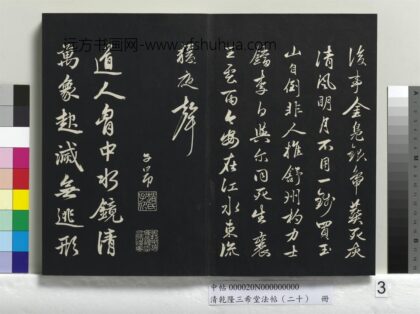 远方书画网-www.yfshuhua.com
後事金鳧銀鴨葬死灰
清風明月不用一錢買玉
山自倒非人推舒州杓力士
鐺李白與爾同死生襄
王雲雨今安在江水東流
猿夜聲
子昂
道人胷中水鏡清
萬象起滅無逃形
中帖 000020N000000000
清乾隆三希堂法帖（二十） 冊
3